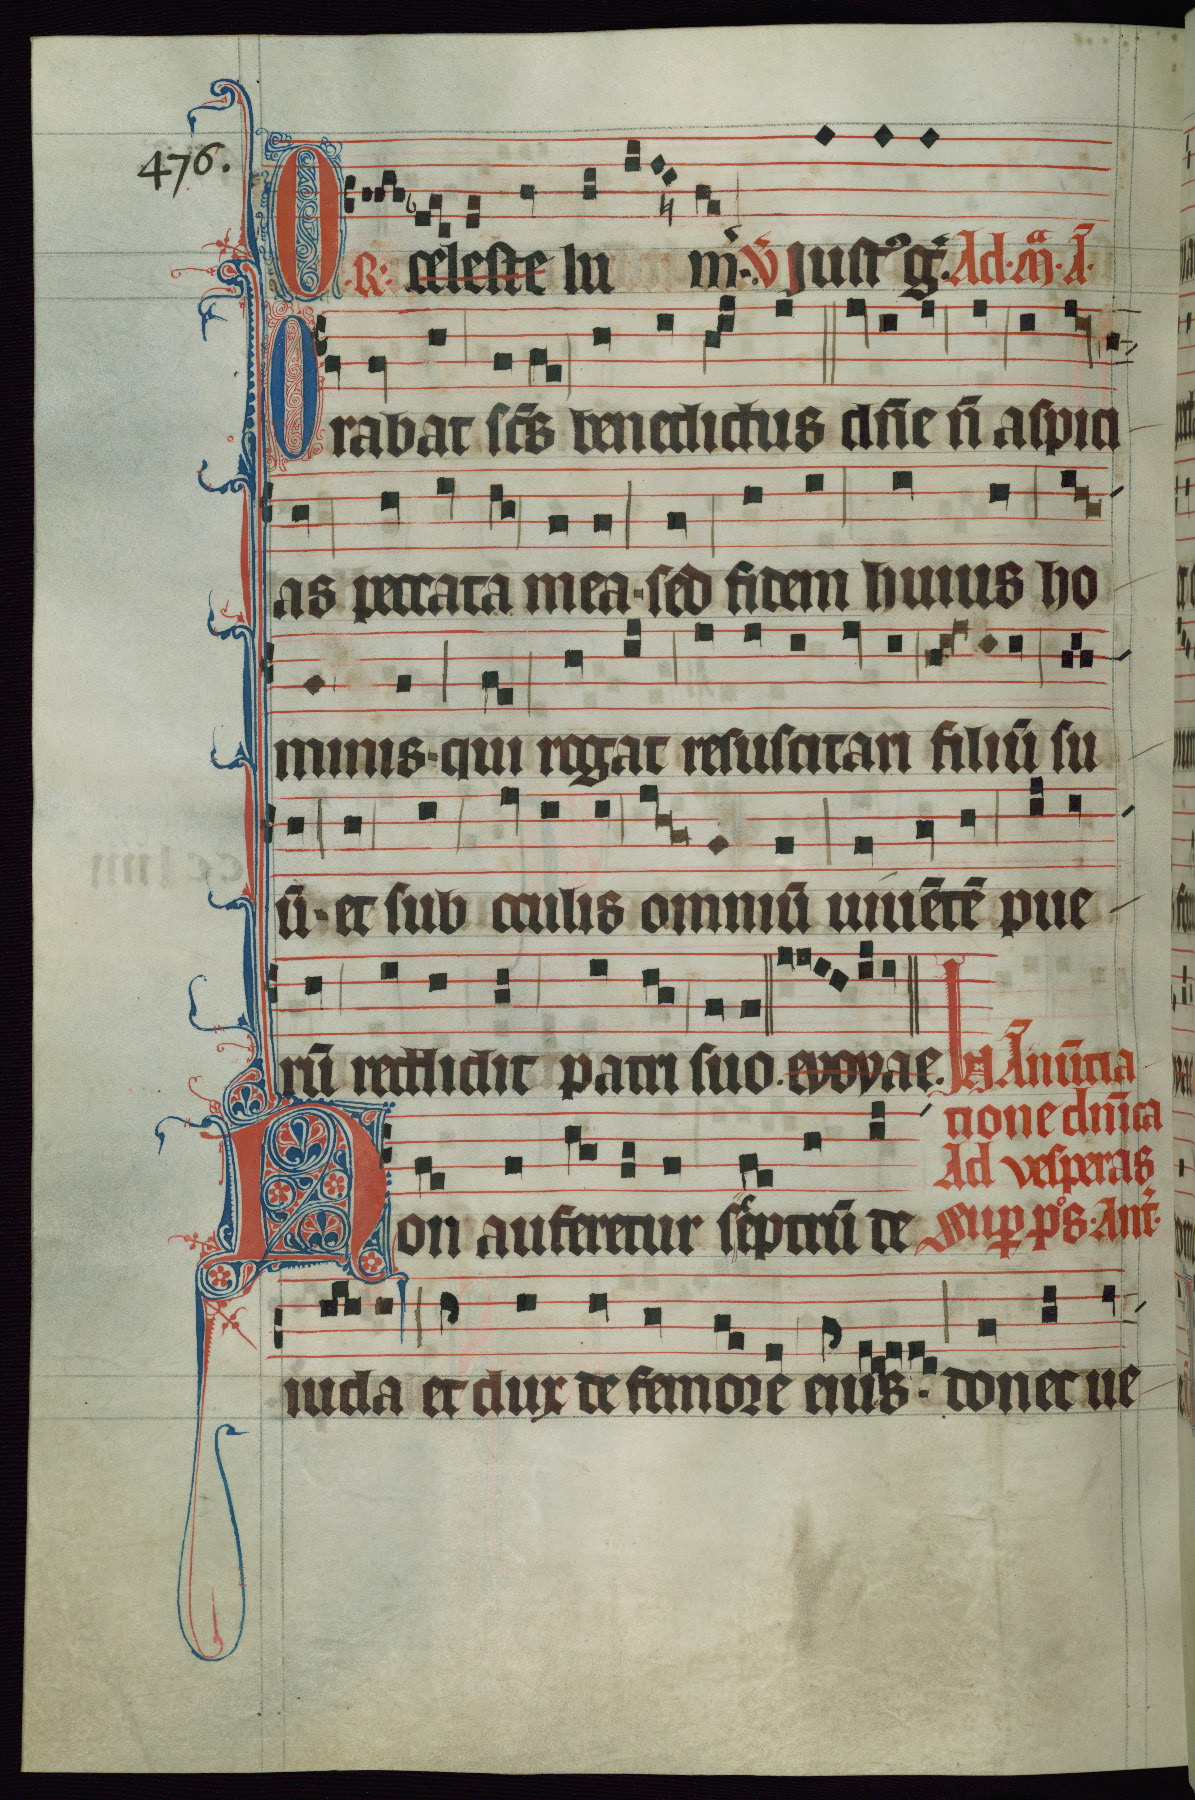 476.
O R. celeste lu m̄. V Just⁹ g̃. Ad. m̃. A᷃.
Orabat sc̄s benedictus dn̄e n̄ aspici
as peccata mea. sed fidem huius ho
minis. qui rogat resuscitari filiū su
ū. et sub oculis omniū uiuētē pue
rū reddidit patri suo. evovae. In Anūtia
tione dn̄ica
Ad vesperas
Sup p̄s. Ant̃.
Non auferetur sceptrū de
iuda et dux de femore eius. donec ue